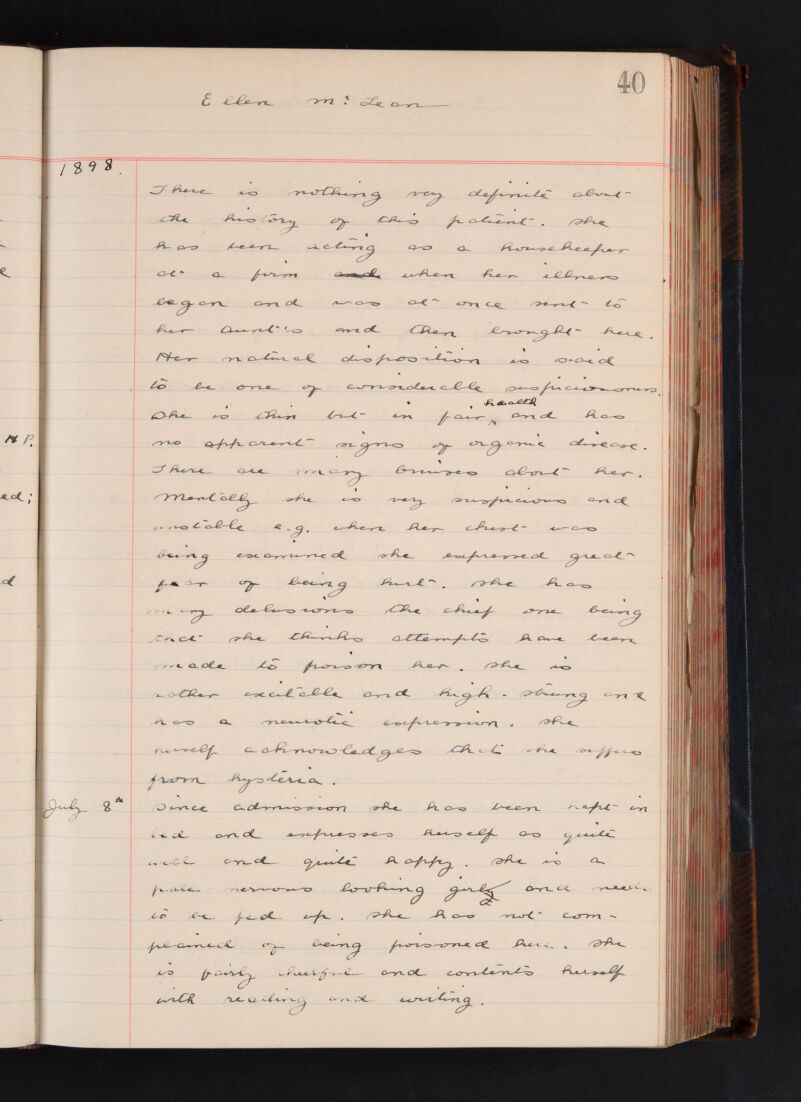 40
Ellen Mc Lean
1898.
There is nothing very definite about
the history of this patient. She
has been acting as a housekeeper
at a firm and when her illness
began and was at once sent to
her Aunt's and then brought here.
Her natural disposition is said
to be one of considerable suspiciousness.
health
She is thin but in fair and has
no apparent signs of organic disease.
There are many bruises about her.
Mentally she is very suspicious and
unstable e.g. when her chest was
being examined she expressed great
fear of being hurt. She has
many delusions the chief one being
that she thinks attempts have been
made to poison her. She is
rather excitable and high-strung and
has a neurotic expression. She
herself acknowledges that she suffers
from hysteria.
July 8th Since admission she has been kept in
bed and expresses herself as quite
well and quite happy. She is a
pale nervous looking girl and needs
to be fed up. She has not com-
plained of being poisoned here. She
is fairly cheerful and contents herself
with reading and writing.
P.
ed;
d
e